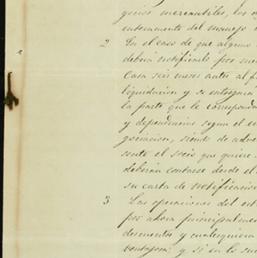 gocios mercantiles, los
enteramente del manejo
2 En el caso de que alguno
deberá notificarlo por
Casa seis meses antes al
liquidacion y se entregará
la parte que le corresponda
y dependencias segun el
gociacion, siendo de
sente el socio que quiere
deberán contarse desde el
su carta de notificacion
3 Las operaciones del
por ahora principalmente
descuentos y cualesquiera
ventajosa: y si en lo